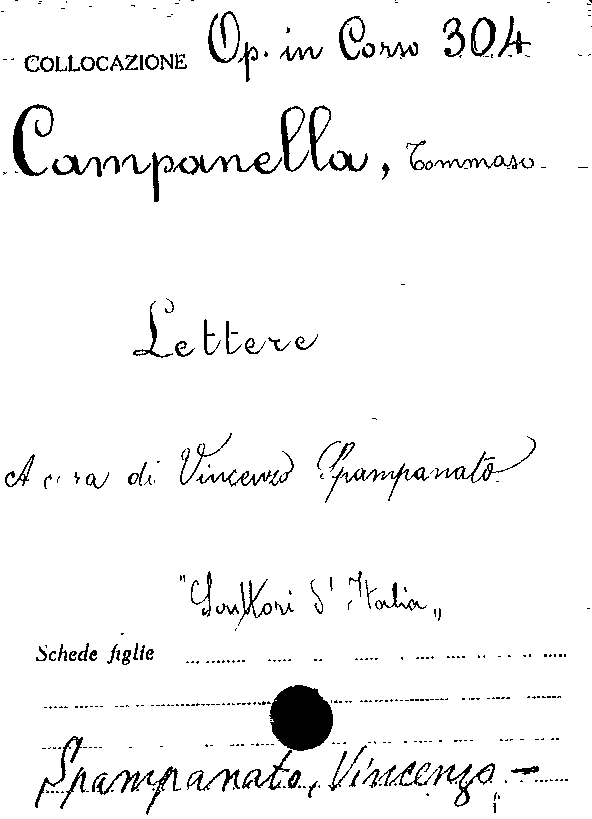 COLLOCAZIONE Op. in Corso 304
Campanella, Tommaso
Lettere
A cura di Vincenzo Spampanato
"Scrittori d'Italia"
Schede figlie
Spampanato, Vincenzo -